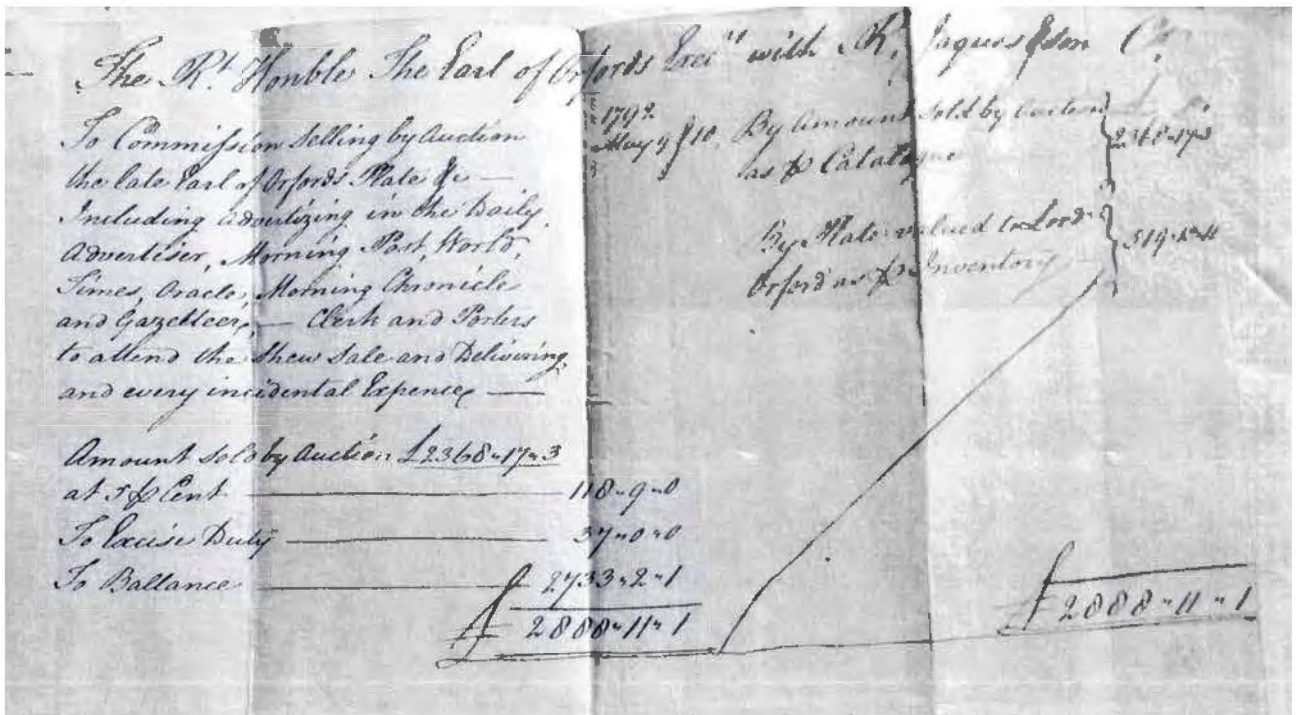 The Rt Honble The Earl of Orfords Exec.rs with R. Jaques & Son
To Commission Selling by Auction
the late Earl of Orfords Plate &c —
Including advertizing in the Daily
Advertiser, Morning Post, World,
Times, Oracle, Morning Chronicle
and Gazetteer, — Clerk and Porters
to attend the Shew Sale and Delivering
and every incidental Expence —
Amount Sold by Auction £2368"17"3
at 5 ₽ Cent — 118"9"0
To Excise Duty — 37"0"0
To Ballance — 2733"2"1
£ 2888"11"1
1792
May 9 & 10. By Amount Sold by Auction
as ₽ Catalogue 2368"17"3
By Plate valued to Lord
Orford as ₽ Inventory
£ 2888"11"1